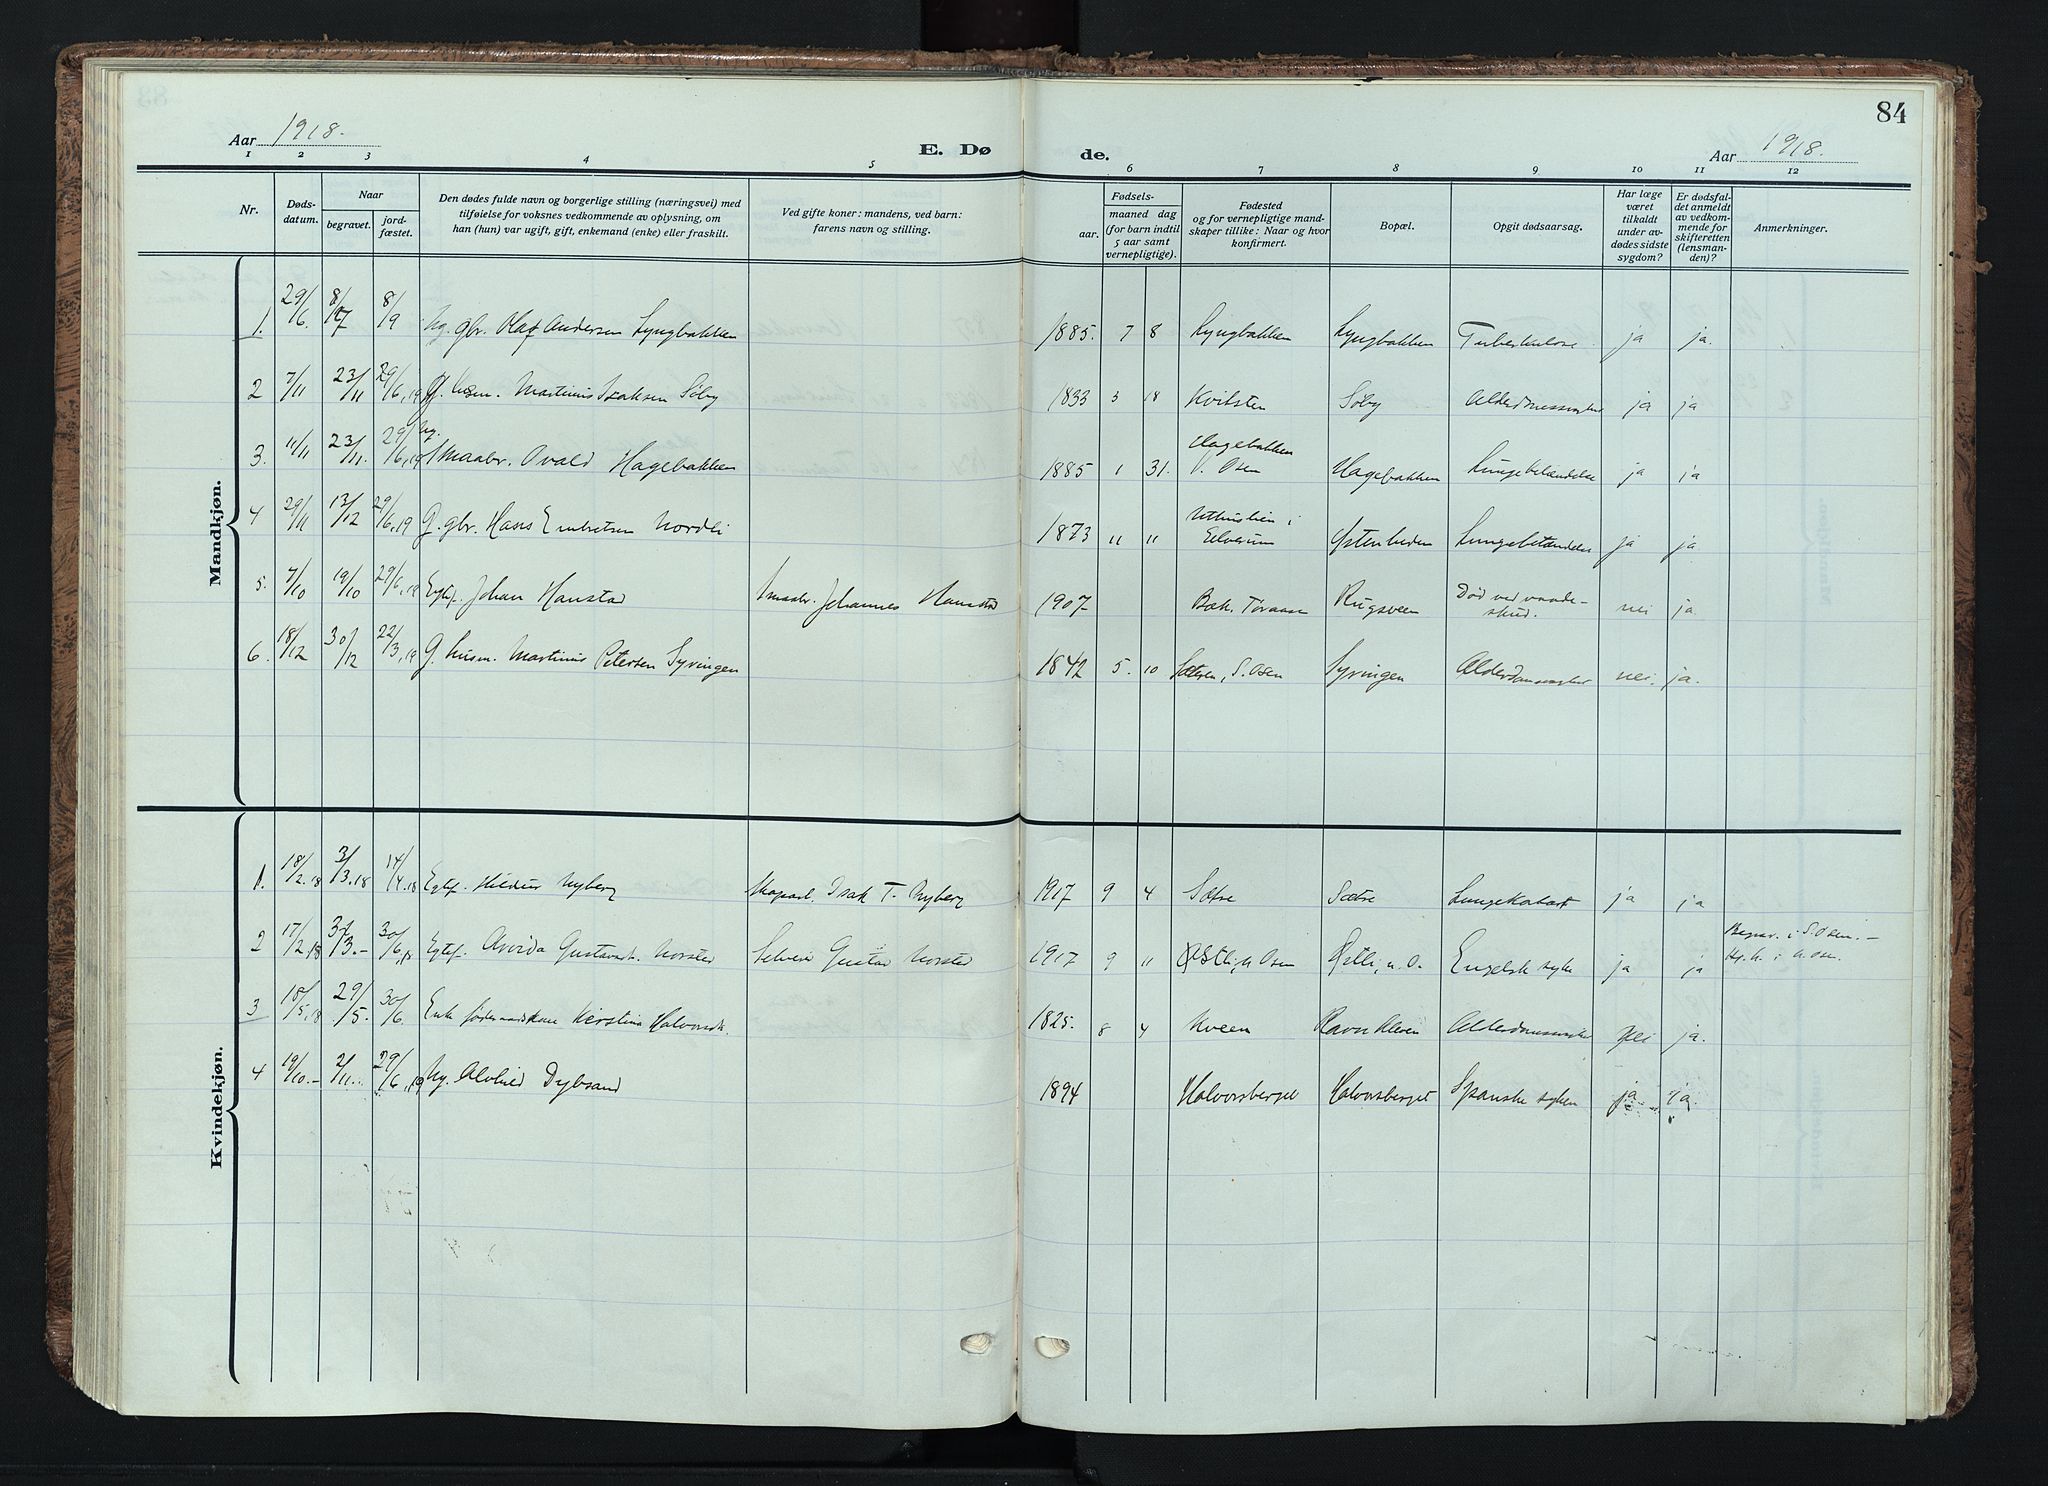 84
Aar 1918.
E. Døde.
Aar 1918.
1 2 3 4 5 6 7 8 9 10 11 12
Nr.
Døds-
datum.
Naar
begravet.
jord-
fæstet.
Den dødes fulde navn og borgerlige stilling (næringsvei) med
tilføielse for voksnes vedkommende av oplysning, om
han (hun) var ugift, gift, enkemand (enke) eller fraskilt.
Ved gifte koner: mandens, ved barn:
farens navn og stilling.
Fødsels-
aar.
maaned dag
(for barn indtil
5 aar samt
vernepligtige).
Fødested
og for vernepligtige mand-
skaper tillike: Naar og hvor
konfirmert.
Bopæl.
Opgit dødsaarsag.
Har læge
været
tilkaldt
under av-
dødes sidste
sygdom?
Er dødsfal-
det anmeldt
av vedkom-
mende for
skifteretten
(lensman-
den)?
Anmerkninger.
Mandkjøn.
1. 29/6 8/7 8/9 Ug. gbr. Olaf Andersen Lyngbakken 1885. 7 8 Lyngbakken Lyngbakken Tuberkulose ja ja.
2 7/11 23/11 29/6,19 Martinus Isaksen Søby 1833 3 18 Kvilsten Søby ja ja
3. 11/11 23/11. 29/6,19 Ug. Smaabr. Ovald Hagebakken 1885 1 31. Hagebakken Osen Hagebakken Lungebetændelse ja ja
4 29/11 13/12 29/6,19 G. gbr. Hans Embretsen Nordli 1873 11 11 i Elverum Lungebetændelse ja ja.
5. 7/10 19/10 29/6,19 Egtef. Johan Hanstad Smaabr. Johannes Hanstad 1907 Rugsveen Død ved vaade-
skud. nei ja.
6. 18/12 30/12 22/3,19 G. husm. Martinus Petersen Syringen 1842 5. 10 S. Osen Syringen nei. ja.
Kvindekjøn.
1. 18/2.18 3/3.18 14/4.18 Egtef. Hildur Nyberg Isak T. Nyberg 1917 9 4 Sætre Sætre ja ja
2 17/2.18 30/6,18 Egtef. Arvida Gustavsd. Norsted Gustav Norsted 1917 9 11 Engelsk syke ja ja Begrav. i S. Osen. –
3 18/5,18 29/5. 30/6. Enke Kerstina Halvorsd. 1825. 8 4 Kveen nei ja.
4 19/10.- 2/11. 29/6,19 Ug. Alvhild Dybsand 1894 Halvorsberget Halvorsberget Spanske syken ja ja